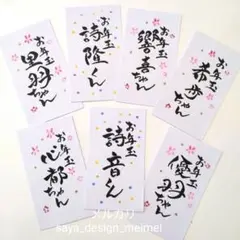 お年玉
黒羽ちゃん
お年玉
詩隆くん
お年玉
響喜ちゃん
お年玉
希安ちゃん
お年玉
心都ちゃん
お年玉
詩音くん
お年玉
優羽ちゃん
メルカリ
saya_design_meimei